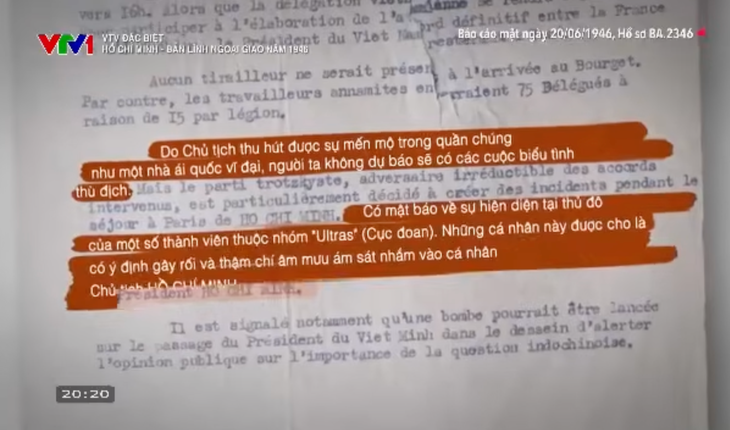 vers 16h. alors que la délégation
participer à l'élaboration de l'a ord définitif entre la France
Président du Viet
VTV1
VTV ĐẶC BIỆT
HỒ CHÍ MINH - BẢN LĨNH NGOẠI GIAO NĂM 1946
Báo cáo mật ngày 20/06/1946, Hồ sơ BA.2346
Aucun tirailleur ne serait présen à l'arrivée au Bourget.
Par contre, les travailleurs annamites en raient 75 Délégués à
raison de I5 par légion.
Do Chủ tịch thu hút được sự mến mộ trong quần chúng
như một nhà ái quốc vĩ đại, người ta không dự báo sẽ có các cuộc biểu tình
thù địch. Mais le parti trotskyste, adversaire irréductible des accords
intervenus, est particulièrement décidé à créer des incidents pendant le
séjour à Paris de HO CHI MINH. Có mật báo về sự hiện diện tại thủ đô
của một số thành viên thuộc nhóm "Ultras" (Cực đoan). Những cá nhân này được cho là
có ý định gây rối và thậm chí âm mưu ám sát nhắm vào cá nhân
Chủ tịch HỒ CHÍ MINH
Président HO CHI MINH.
Il est signalé notamment qu'une bombe pourrait être lancée
sur le passage du Président du Viet Minh dans le dessein d'alerter
l'opinion publique sur l'importance de la question indochinoise.
20:20